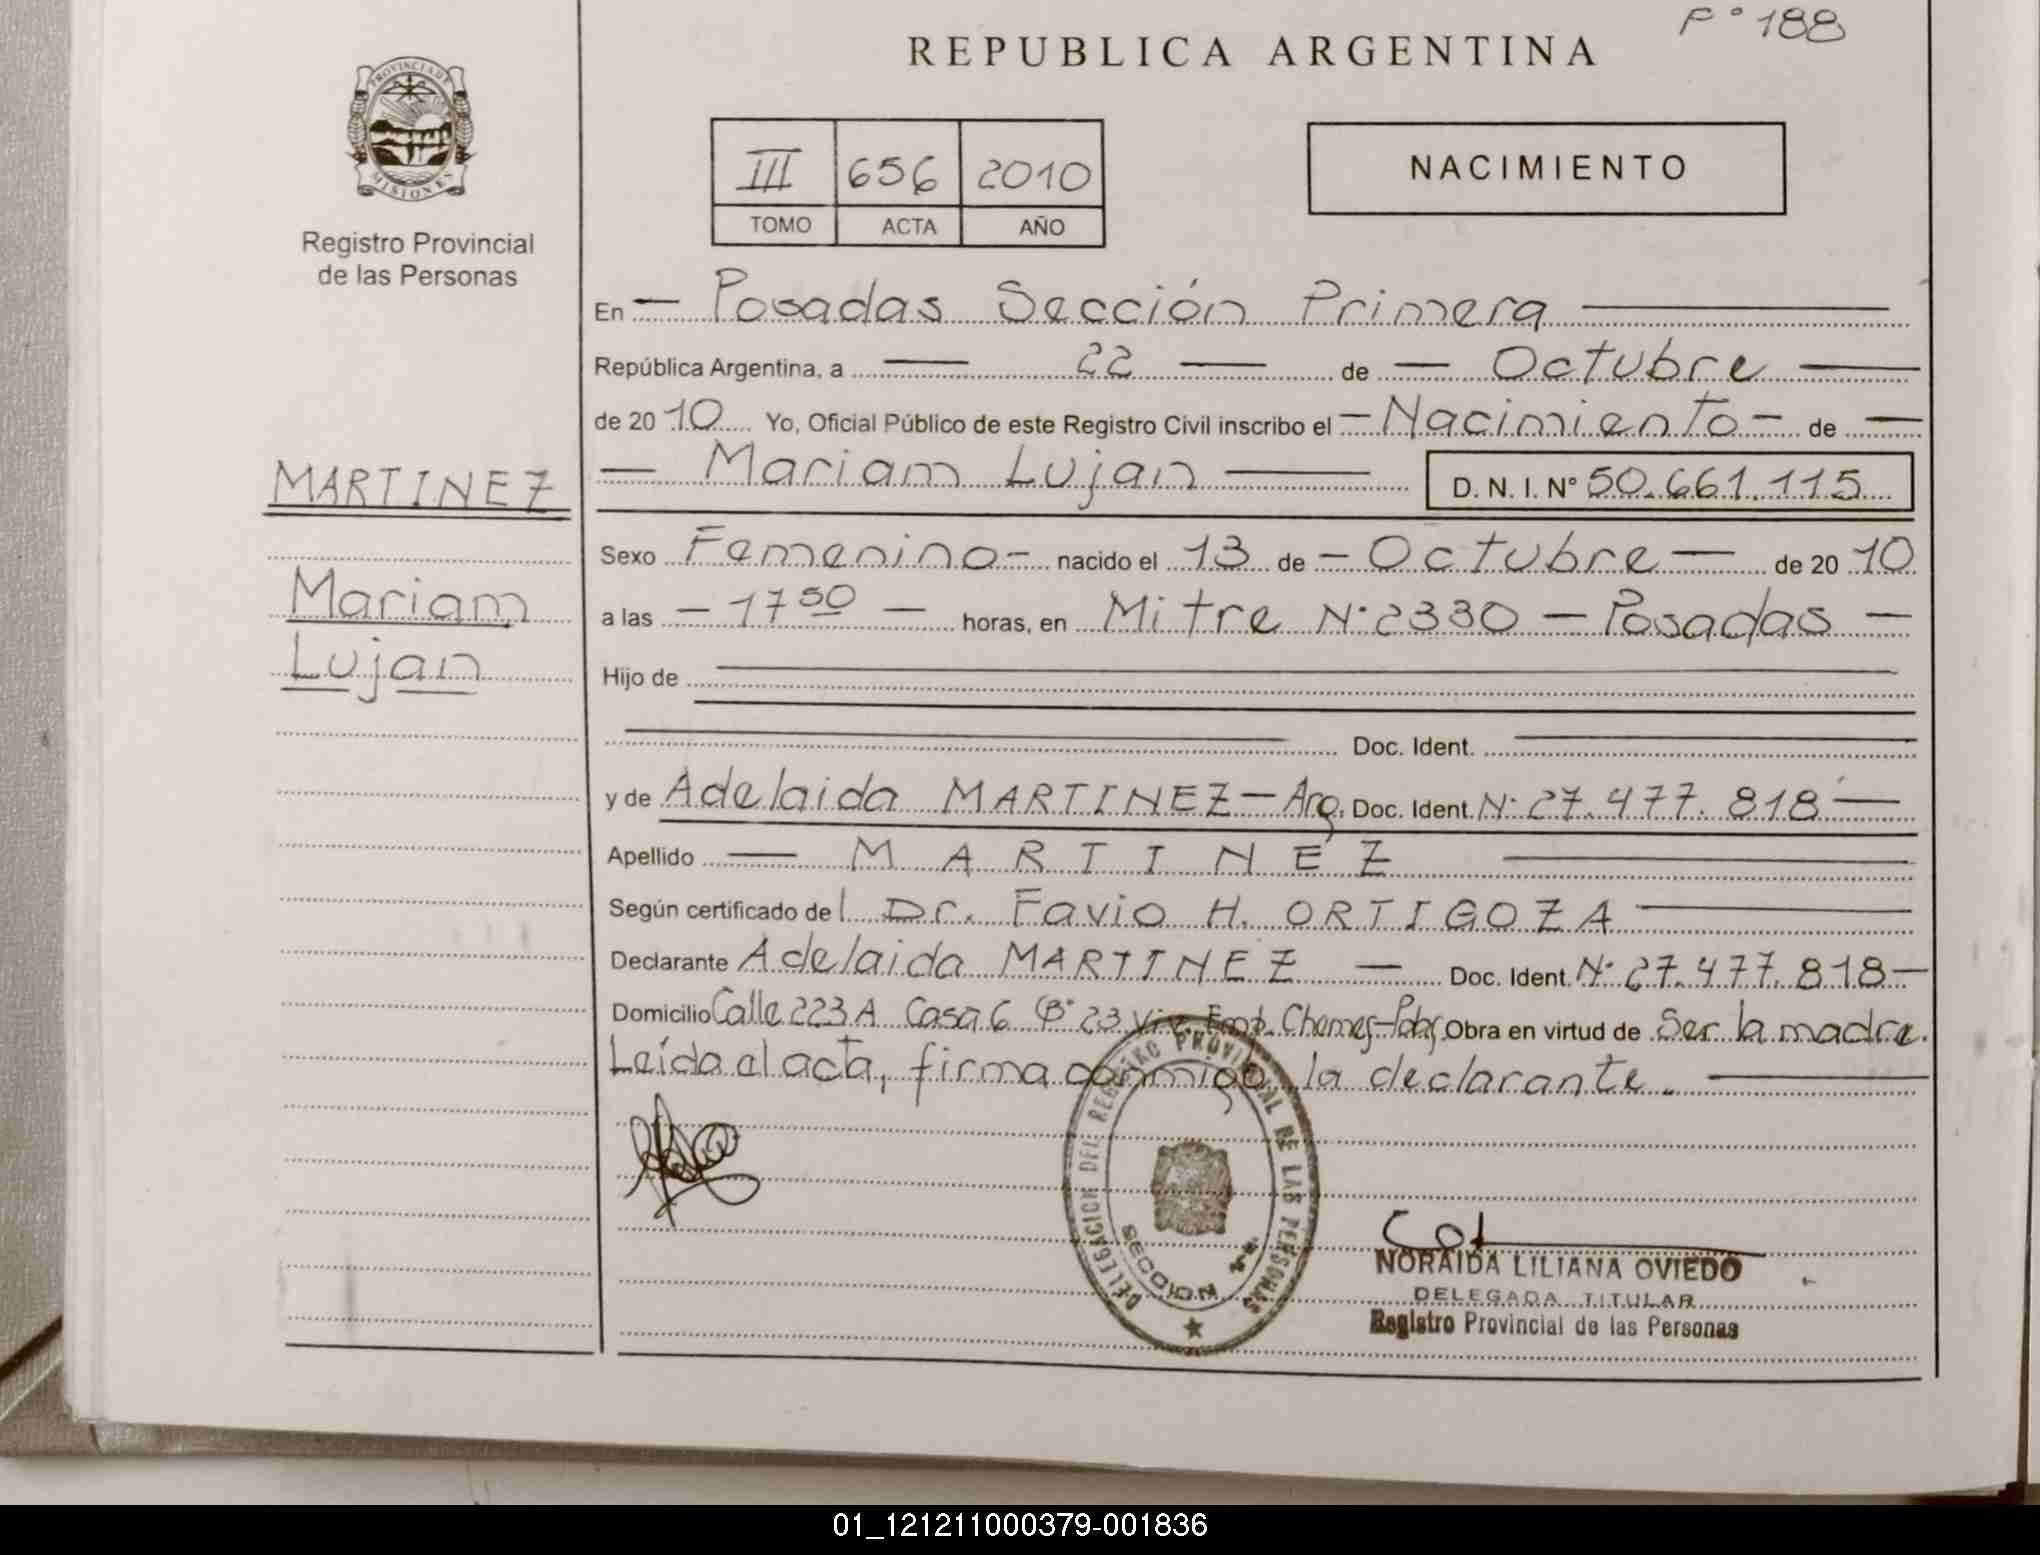 F° 188
REPUBLICA ARGENTINA
PROVINCIA DE
MISIONES
Registro Provincial
de las Personas
III 656 2010
TOMO ACTA AÑO
NACIMIENTO
En — Posadas Sección Primera —
República Argentina, a — 22 — de — Octubre —
de 20 10 Yo, Oficial Público de este Registro Civil inscribo el — Nacimiento — de —
— Mariam Lujan — D. N. I. N° 50.661.115
MARTINEZ
Mariam
Lujan
Sexo Femenino — nacido el 13 de — Octubre — de 20 10
a las — 17 50 — horas, en Mitre N° 2330 — Posadas —
Hijo de
Doc. Ident.
y de Adelaida MARTINEZ — Arg. Doc. Ident. N° 27.477.818 —
Apellido — MARTINEZ —
Según certificado del Dr. Favio H. ORTIGOZA —
Declarante Adelaida MARTINEZ — Doc. Ident. N° 27.477.818 —
Domicilio Calle 223 A Casa 6 B° 23 Viv. Chemes - Pdas Obra en virtud de Ser la madre.
Leída el acta, firma conmigo la declarante. —
DELEGACION DEL REGISTRO PROVINCIAL DE LAS PERSONAS
SECCION 1a.
NORAIDA LILIANA OVIEDO
DELEGADA TITULAR
Registro Provincial de las Personas
01_121211000379-001836